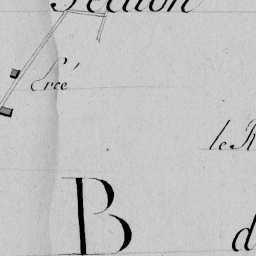 Section
Créé
le R
B d